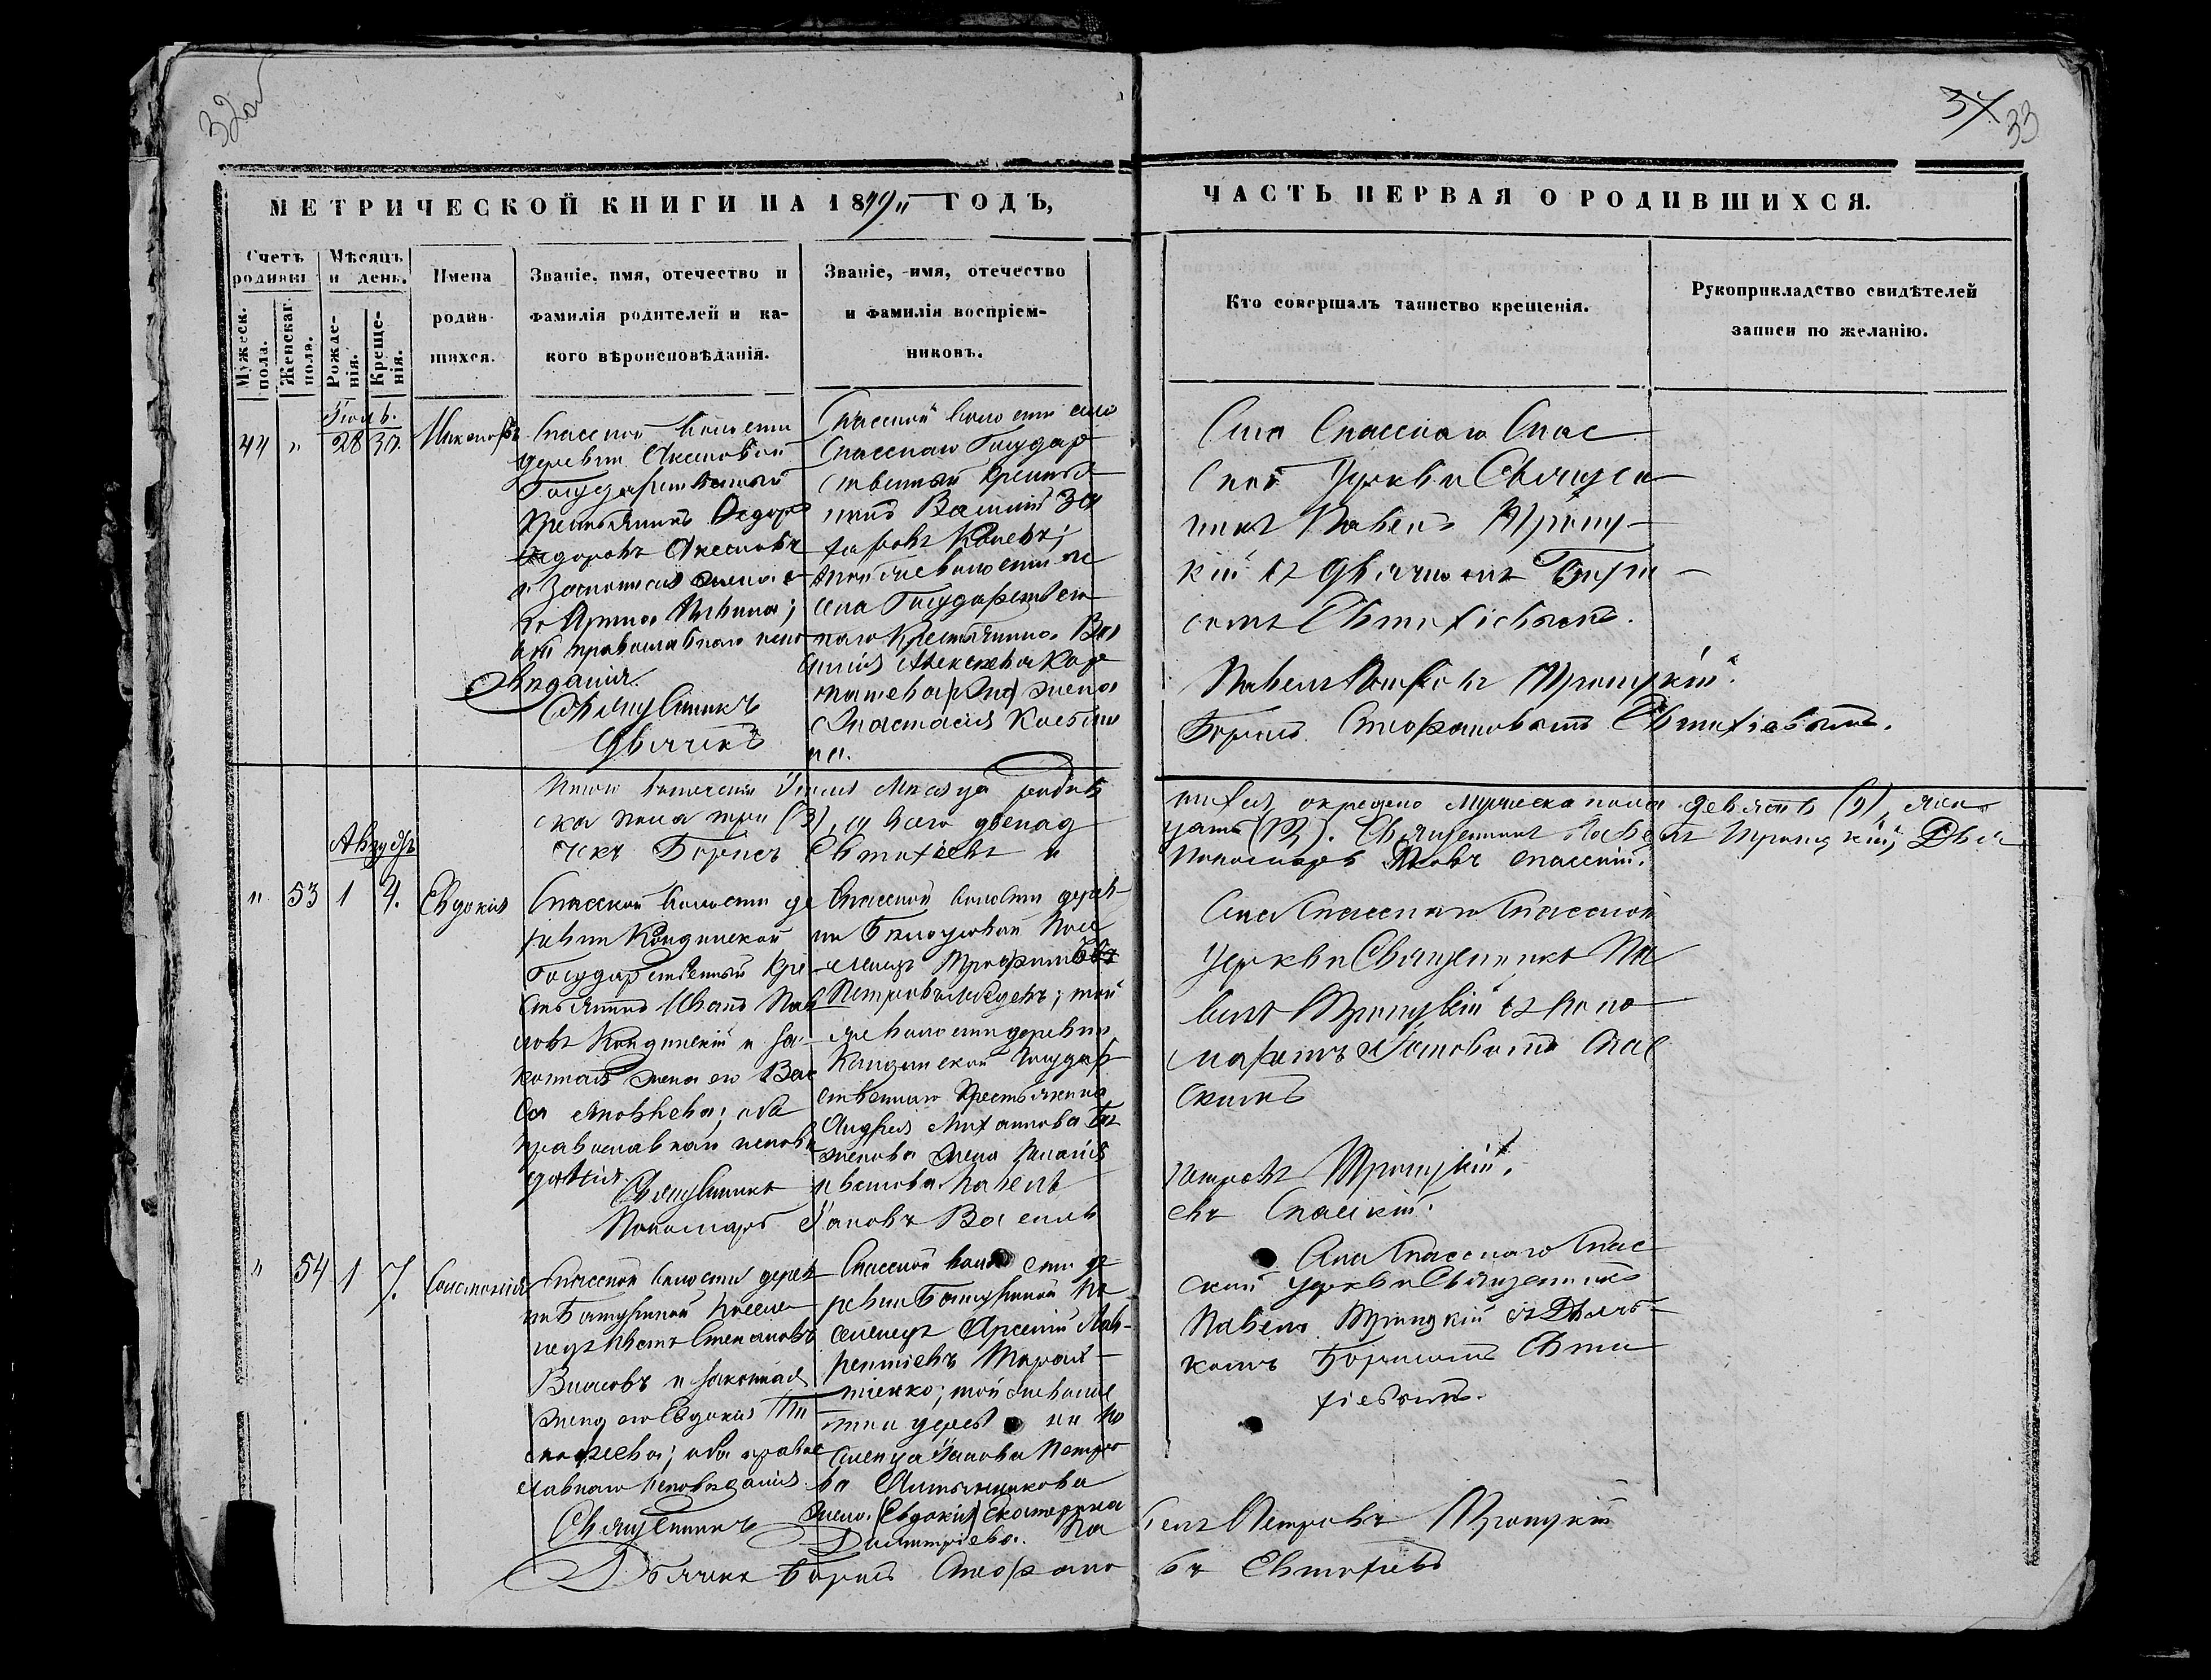 32об
37 33
МЕТРИЧЕСКОЙ КНИГИ НА 1849 ГОДЪ,
ЧАСТЬ ПЕРВАЯ О РОДИВШИХСЯ.
Счетъ родивш.
Мужеск. пола.
Женскаг. пола.
Мѣсяцъ и день.
Рожде-нія.
Креще-нія.
Имена
родив-
шихся.
Званіе, имя, отечество и
фамилія родителей и ка-
кого вѣроисповѣданія.
Званіе, имя, отечество
и фамилія воспріем-
никовъ.
Кто совершалъ таинство крещенія.
Рукоприкладство свидѣтелей
записи по желанію.
Іюль.
44 " 28 30. Никифоръ
Спасской волости
деревни Аксеновой
Государственный
Крестьянинъ Ѳедоръ
Ѳедоровъ Аксеновъ
и Законная жена е
го Ирина
оба православнаго испо
вѣданія.
Священникъ
Дьячекъ
Спасской волости села
Спасскаго Государ
ственный Крестья
нинъ Василий За
харовъ
той же волости и
села Государствен
наго Крестьянина Ва
силія Алексѣева Кар
жена
Анастасія
на.
Села Спасскаго Спас
ской Церкви Священ
никъ Павелъ Троиц
кій съ дьячкомъ Бори
сомъ Евтихіевымъ.
Павелъ Петровъ Троицкій.
Борисъ Стефановъ Евтихіевъ.
Итого въ теченіи Іюля Мѣсяца родив
шихся окрещено мужеска пола девять (9), жен
ска пола три (3), а всего двенад
цать (12). Священникъ Павелъ Троицкій, Дья
чекъ Борисъ Евтихіевъ и
Пономарь Яковъ Спасскій.
Августъ
" 53 1 4. Евдокія
Спасской волости де
ревни Кондинской
Государственный Кре
стьянинъ Иванъ Пав
ловъ Кондинскій и за
конная жена его Вас
са Яковлева; оба
православнаго исповѣ
данія.
Священникъ
Пономарь
Спасской волости дерев
ни Посе
ленецъ Трофимъ
Петровъ Лебедевъ; той
же волости деревни
Кондинской Государ
ственнаго Крестьянина
Андрея Михайлова Ба
женова жена
Иванова. Павелъ
Яковъ Василь
Села Спасскаго Спасской
Церкви Священникъ Па
велъ Троицкій съ Поно
маремъ Яковомъ Спас
скимъ
Петровъ Троицкій.
евъ Спасскій.
" 54 1 7.
Спасской волости дерев
ни Батуриной Поселе
нецъ Иванъ Степановъ
Власовъ и законная
жена его Евдокія Ти
моѳеева; оба право
славнаго исповѣданія.
Священникъ
Дьячекъ Борисъ Стефано
Спасской волости де
ревни Батуриной По
селенецъ Арсеній Лав
рентіевъ
той же воло
сти деревни По
селенца Якова Петро
ва
жена (Евдокія) Екатерина
Дмитріева. Па
Села Спасскаго Спас
ской Церкви Священникъ
Павелъ Троицкій съ Дьяч
комъ Борисомъ Евти
хіевымъ.
велъ Петровъ Троицкій
въ Евтихіевъ